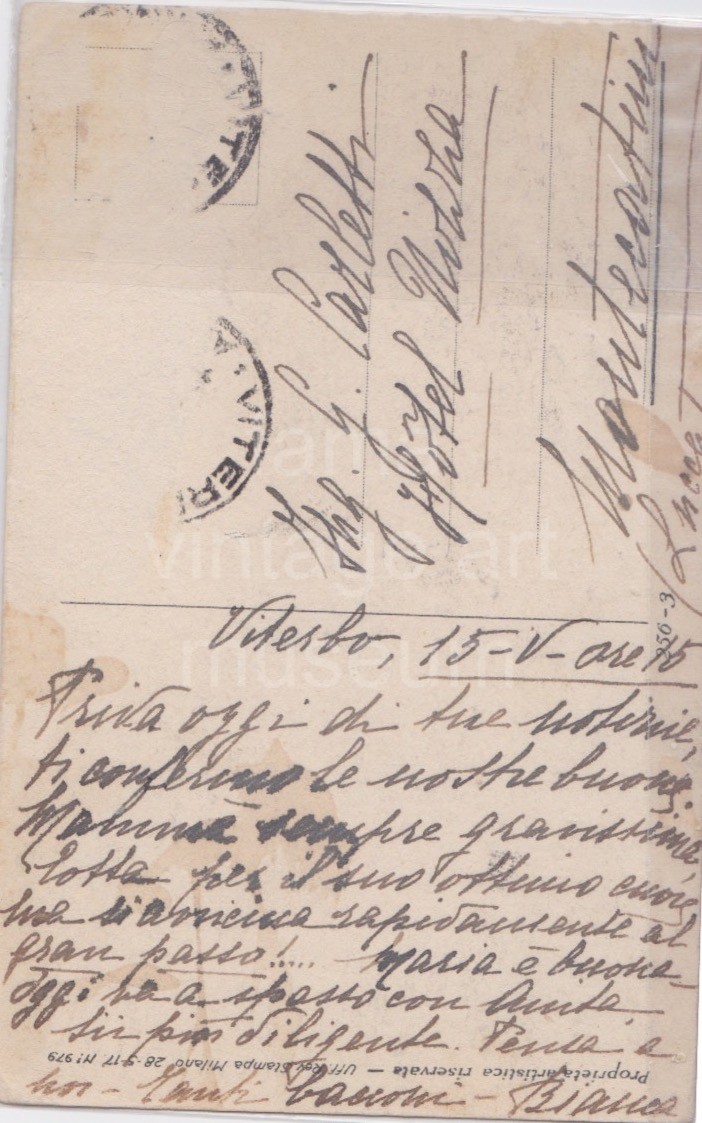 VITERB
A·VITERB
Ing. G. Carletti
Hôtel
Montecatini
(Lucca)
256-3
Viterbo, 15-V- ore 15
Priva oggi di tue notizie,
ti confermo le nostre buone.
Mamma sempre gravissima,
lotta per il suo ottimo cuore
ma si avvicina rapidamente al
gran passo!.... Maria è buona
oggi va a spasso con Anita.
Sii più diligente. Pensa a
noi - Tanti bacioni - Bianca
Proprietà artistica riservata — Uff. Rev. Stampa Milano 28-5-17 N! 979
vintage art
museum